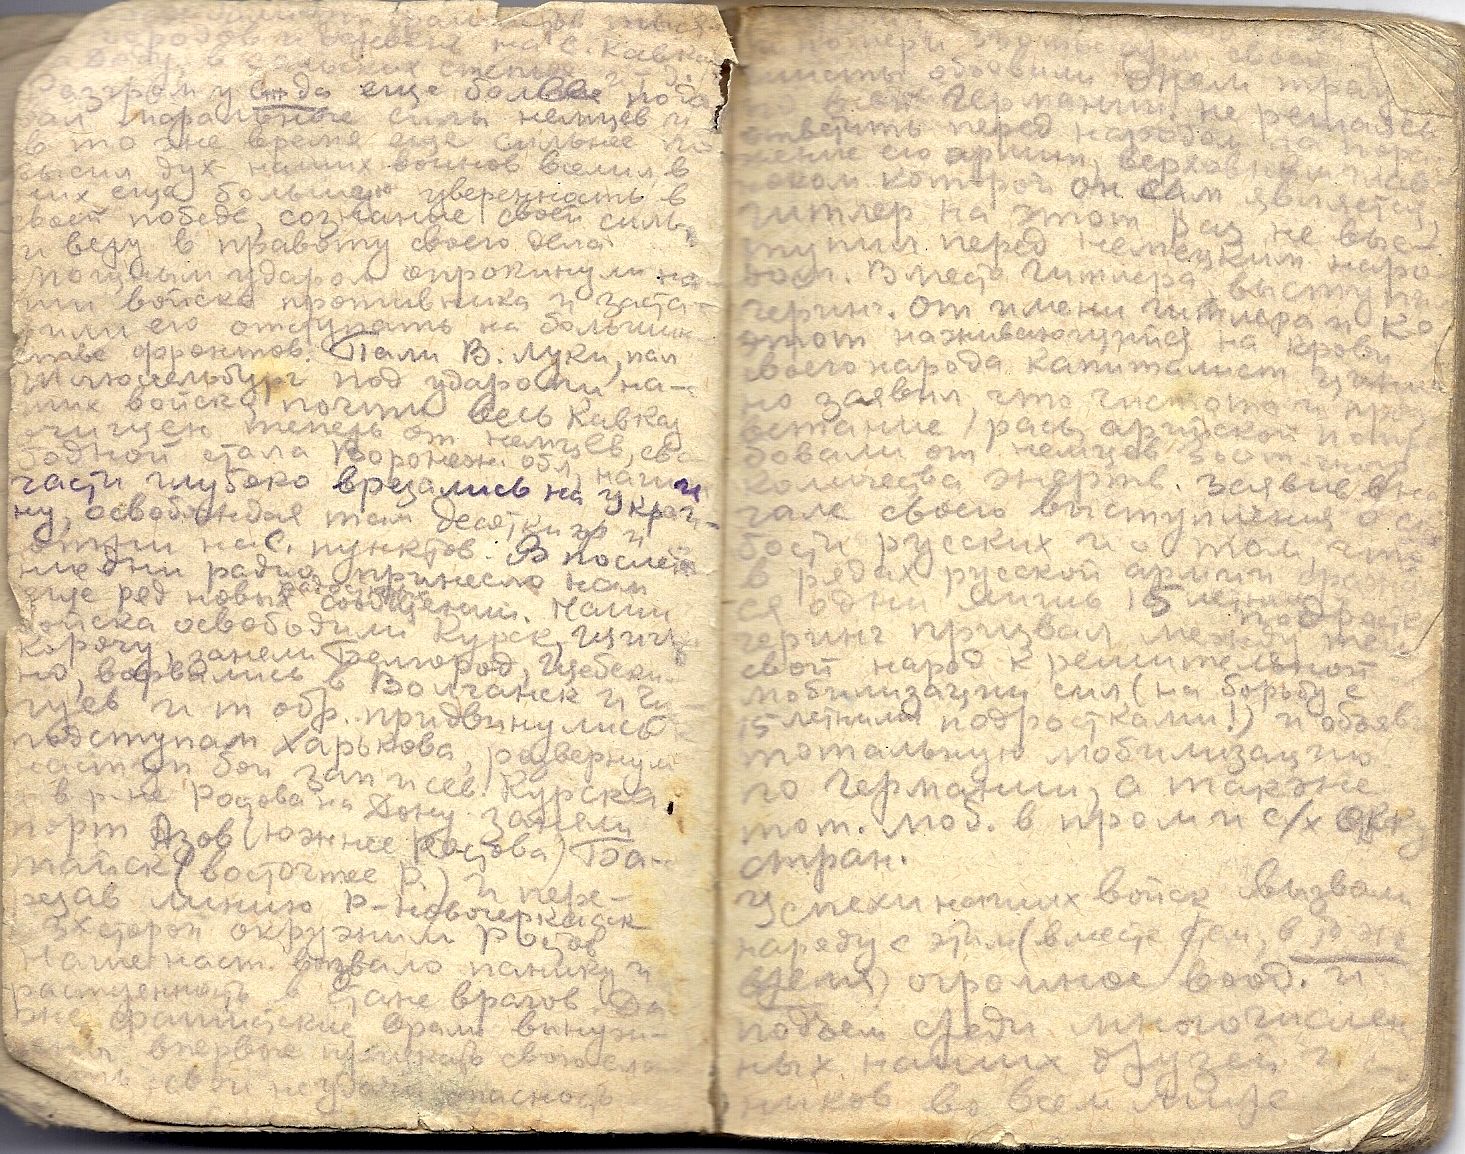 городов и
в сальских степях
Разгром у
еще более
вал моральные силы немцев и
в то же время еще сильнее по
высил дух наших воинов вселил в
них еще большую уверенность в
своей победе, сознание своей силы,
и веру в правоту своего дела
Мощным ударом опрокинули на-
ши войска противника и заста-
вили его отступать на большин-
стве фронтов. Пали В. Луки, пал
Шлюссельбург под ударами на-
ших войск, почти весь Кавказ
очищен теперь от немцев, сво
бодной стала Воронеж. обл, наши
части глубоко врезались на Украи-
ну, освобождая там десятки и
сотни нас. пунктов. В послед
ние дни радио принесло нам
еще ряд новых радостных сообщений. Наши
войска освободили Курск, Щигры
Корочу, заняли Белгород, Шебеки-
но, ворвались в Волчанск и Чу-
гуев и т обр. придвинулись к
подступам Харькова, развернули
наступ бои зап и сев Курска
в р-не Ростова на Дону заняли
порт Азов (южнее Ростова) Ба-
тайск (восточнее Р.) и пере-
резав линию Р-Новочеркасск
с 3х сторон окружили Ростов
Наше наст. вызвало панику и
растерянность в стане врагов. Да
же фашистские врали вынуж-
дены впервые признать свою сла
свои неудачи опасность
потери
объявили днем траура
по всей Германии. не решаясь
ответить перед народом за пора
жение его армии, верховным глав
ноком которой он сам является,
Гитлер на этот раз не выс-
тупил перед немецким наро
дом. Вместо Гитлера, выступил
Геринг. От имени Гитлера и Ко
этот наживающийся на крови
своего народа капиталист цинич
но заявил, что чистота и
расы арийской потре
бовали от немцев
количества жертв. Заявив в на
чале своего выступления о сла
бости русских и о том что
в рядах русской армии
ся одни лишь 15 летние подростки
Геринг призвал между тем
свой народ к решительной
мобилизации сил (на борьбу с
15 летними подростками!) и объяви
тотальную мобилизацию
по Германии, а также
тот. моб. в пром и с/х окку
стран.
Успехи наших войск вызвали
наряду с этим (вместе с тем, в то же
время) огромное воод. и
подъем среди многочислен
ных наших друзей и
ников во всем мире